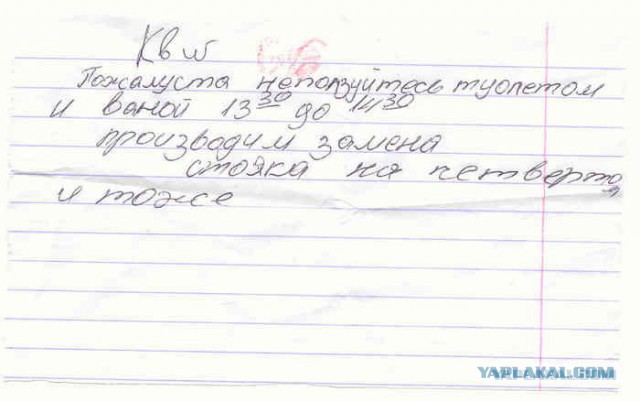 Кв
Пожалуста неползуйтесь туолетом
и ваной 13 30 до 14 30
производим замена
стояка на петверто
и тоже
YAPLAKAL.COM